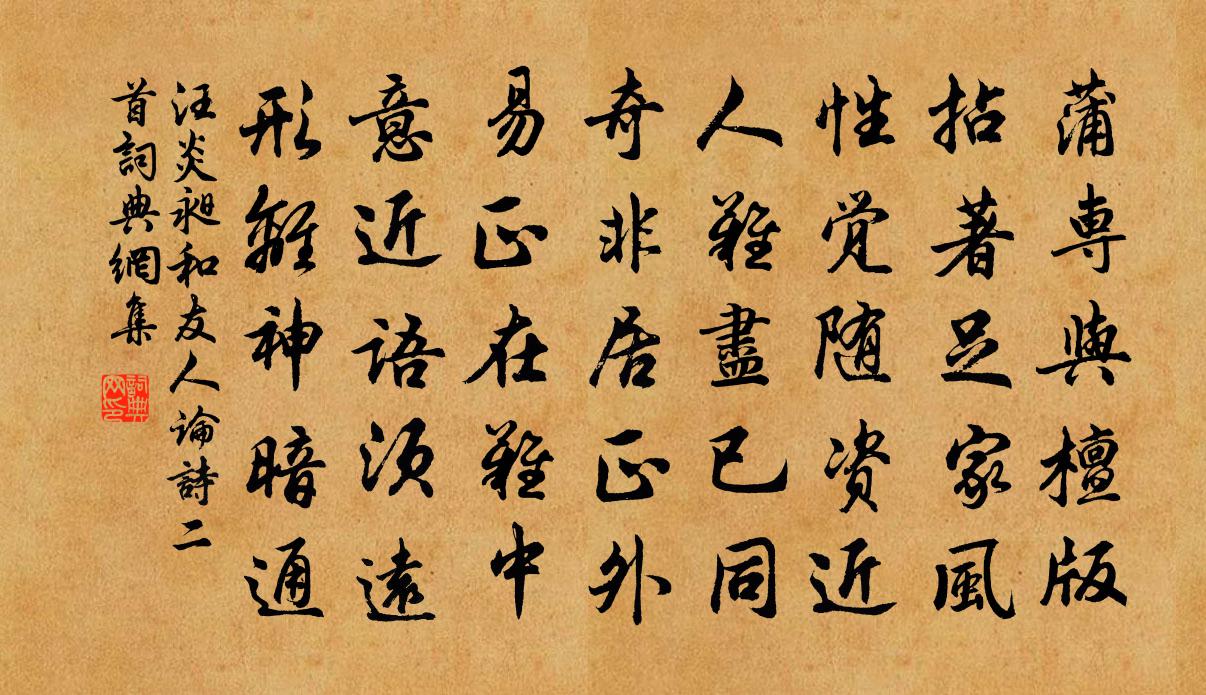 蒲専與檀版
拈著足家風
性覚随资近
人難盡已同
奇非居正外
易正在難中
意近語須遠
形離神暗通
汪炎昶和友人論詩二
首詞典網集
詞典网印